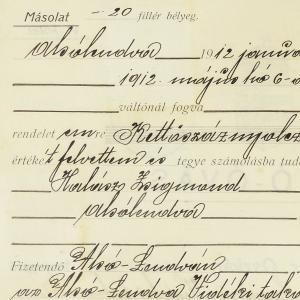 Másolat — 20 fillér bélyeg.
Alsólendva 1912 január
1912. május hó 6-
váltónál fogva
rendelet em re Kettőszáznyolcz
értékét felvettem és tegye számolásba tud
Halász Zsigmond
Alsólendva
Fizetendő Alsó-Lendván
az Alsó-Lendva Vidéki tak